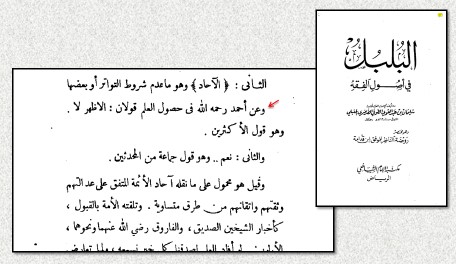 البلبل
في أصول الفقه
الثانى : ﴿ الآحاد ﴾ وهو ماعدم شروط التواتر أو بعضها
وعن أحمد رحمه الله فى حصول العلم قولان : الاظهر لا .
وهو قول الأكثرين .
والثانى : نعم .. وهو قول جماعة من المحدثين .
وقيل هو محمول على ما نقله آحاد الأئمة المتفق على عدالتهم
وثقتهم واتقانهم من طرق متساوية . وتلقته الأمة بالقبول ،
كأخبار الشيخين الصديق ، والفاروق رضى الله عنهما ونحوهما ،
الرياض